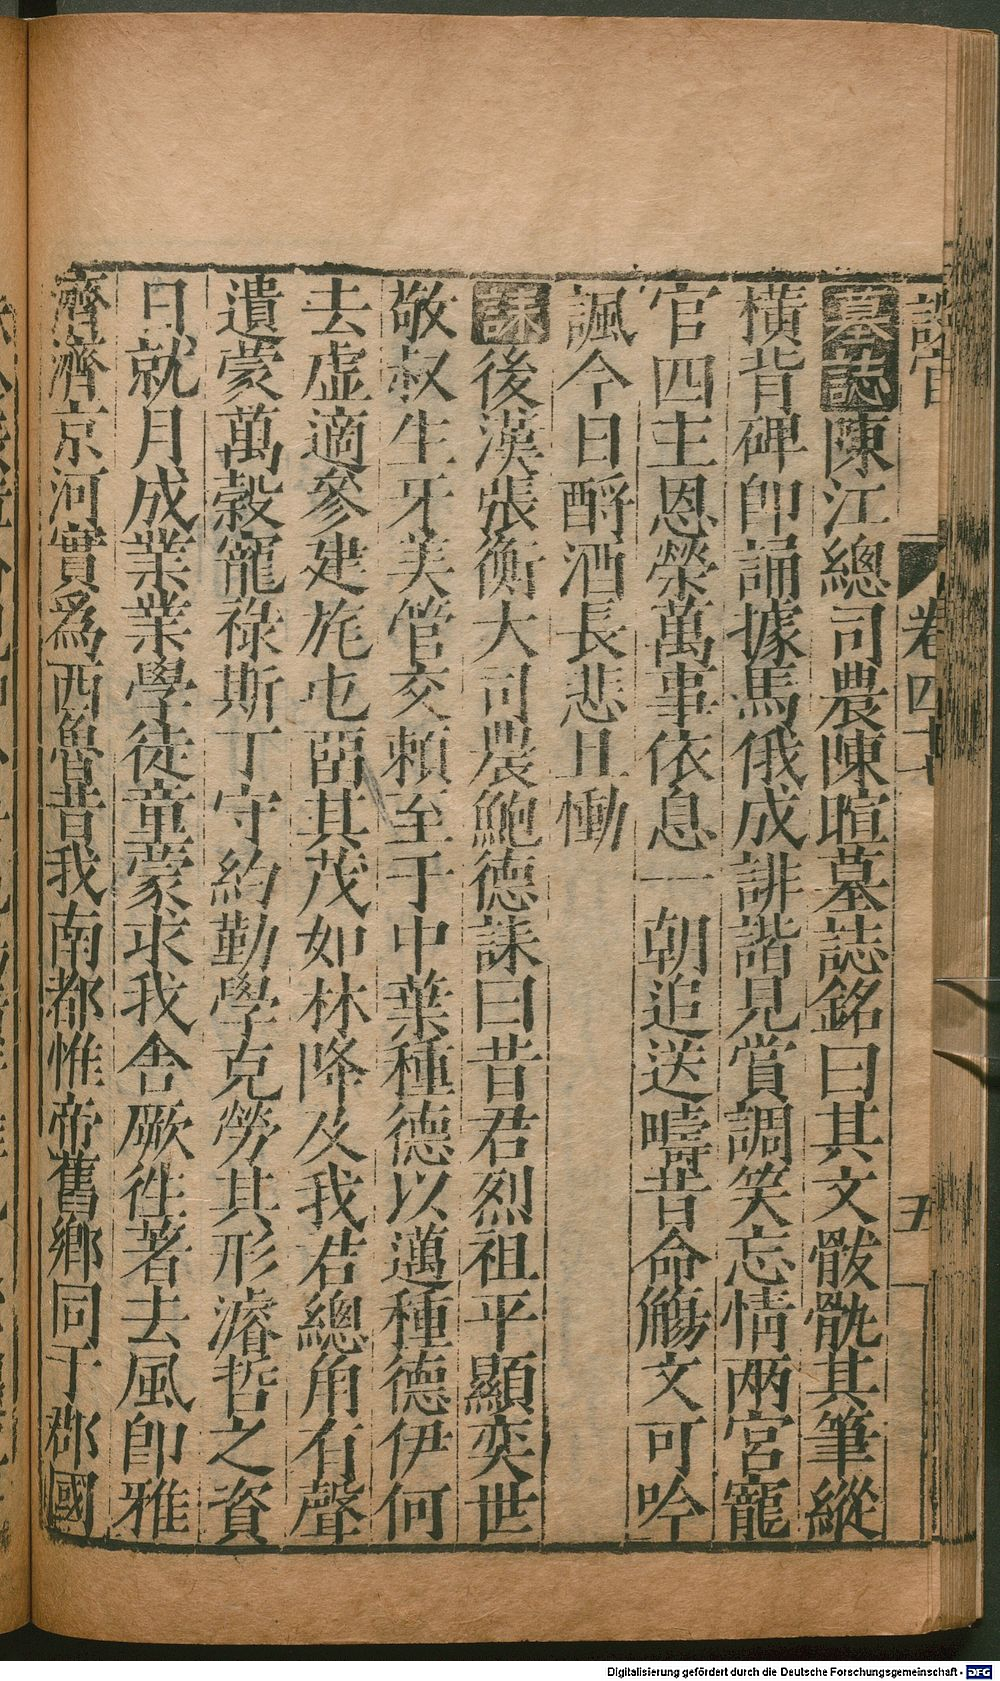 卷四十 五
墓誌陳江總司農陳暄墓誌銘曰其文骳骫其筆縱
橫背碑卽誦據馬俄成誹諧見賞調笑忘情兩宮寵
官四主恩榮萬事依息一朝追送疇昔命觴文可吟
諷今日酹酒長悲且慟
誄後漢張衡大司農鮑德誄曰昔君烈祖平顯奕世
敬叔生牙美管交賴至于中葉種德以邁種德伊何
去虛適參建旄屯留其茂如林降及我君總角有聲
遺蒙萬穀寵祿斯丁守約勤學克勞其形濬哲之資
日就月成業業學徒童蒙求我舍厥往著去風卽雅
濟濟京河實爲西魯昔我南都惟帝舊鄉同于郡國
Digitalisierung gefördert durch die Deutsche Forschungsgemeinschaft - DFG